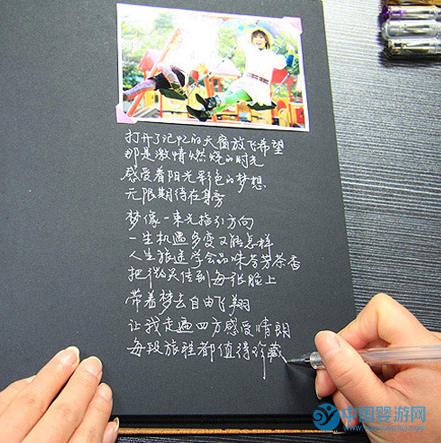 打开了记忆的天窗放飞希望
那是激情燃烧的时光
感受着阳光彩色的梦想
无限期待在身旁
梦像一束光指引方向
一生机遇多变又能怎样
人生旅途学会品味苦芳茶香
把微笑传到每张脸上
带着梦去自由飞翔
让我走遍四方感受晴朗
每段旅程都值得珍藏
中国婴游网